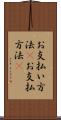 お支払い方
法お支払
方法